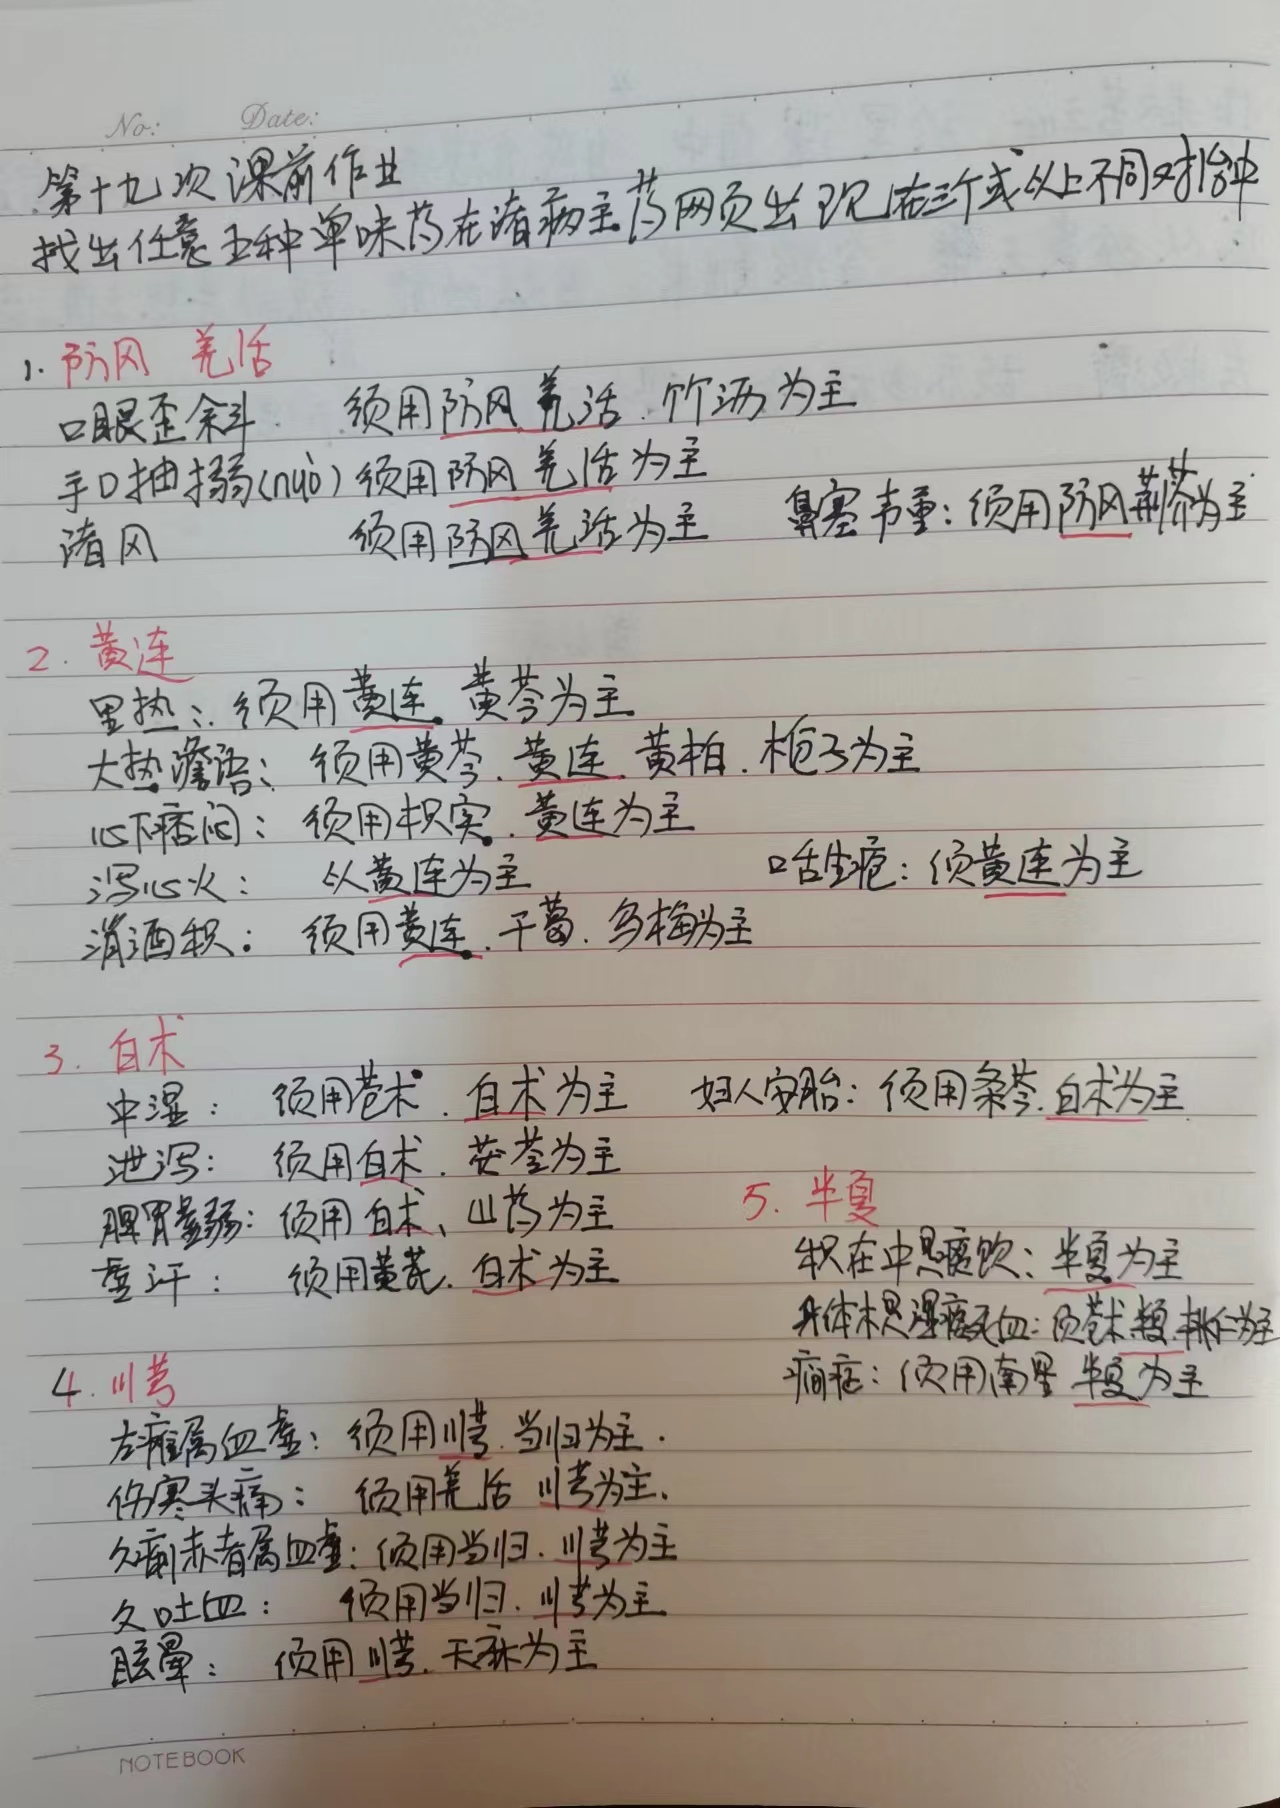 No: Date:
第十九次课前作业
找出任意五种单味药在诸病主药网页出现在三个或以上不同对抬中
1. 防风 羌活
口眼歪斜 须用防风 羌活. 竹沥为主
手口抽搦(nuò) 须用防风 羌活为主
诸风 须用防风 羌活为主 鼻塞声重: 须用防风荆芥为主
2. 黄连
里热: 须用黄连. 黄芩为主
大热谵语: 须用黄芩. 黄连. 黄柏. 栀子为主
心下痞闷: 须用枳实. 黄连为主
泻心火: 以黄连为主 口舌生疮: 须黄连为主
消酒积: 须用黄连. 干葛. 乌梅为主
3. 白术
中湿: 须用苍术. 白术为主 妇人安胎: 须用条芩. 白术为主
泄泻: 须用白术. 茯苓为主
脾胃虚弱: 须用白术、山药为主
虚汗: 须用黄芪. 白术为主
5. 半夏
积在中是痰饮: 半夏为主
身体木是湿痰死血: 须苍术. 半夏. 桃仁为主
痫症: 须用南星 半夏为主
4. 川芎
左瘫属血虚: 须用川芎. 当归为主.
伤寒头痛: 须用羌活 川芎为主.
久痢赤者属血虚: 须用当归. 川芎为主
久吐血: 须用当归. 川芎为主
眩晕: 须用川芎. 天麻为主
NOTEBOOK